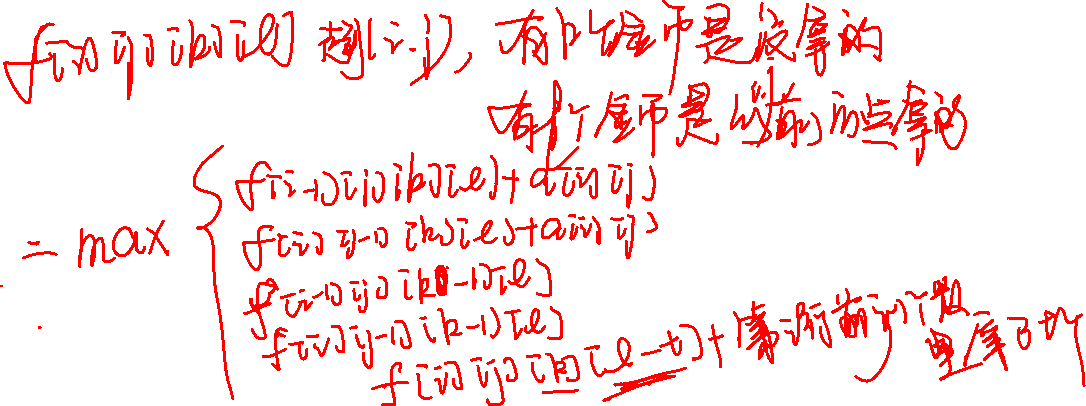 f[i][j][k][l] 走到(i,j), 有k个金币是没拿的
有l个金币是以前的点拿的
= max
f[i-1][j][k][l]+a[i][j]
f[i][j-1][k][l]+a[i][j]
f[i-1][j][k-1][l]
f[i][j-1][k-1][l]
f[i][j][k][l-t]+第i行前j个数 里拿了t个